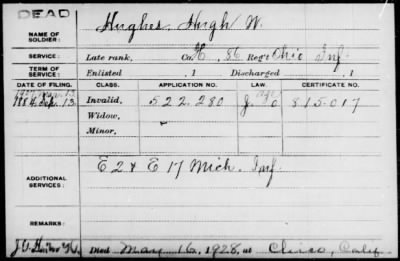 DEAD
NAME OF SOLDIER: Hughes, Hugh W.
SERVICE: Late rank, Co. K, 86 Reg't Ohio Inf.
TERM OF SERVICE: Enlisted , 1 Discharged , 1
DATE OF FILING. CLASS. APPLICATION NO. LAW. CERTIFICATE NO.
1884, Sep. 13 Invalid, 522.280 815.017
Widow,
Minor,
ADDITIONAL SERVICES: E 2 & E 17 Mich. Inf.
REMARKS:
Died May 16, 1928, at Chico, Calif.